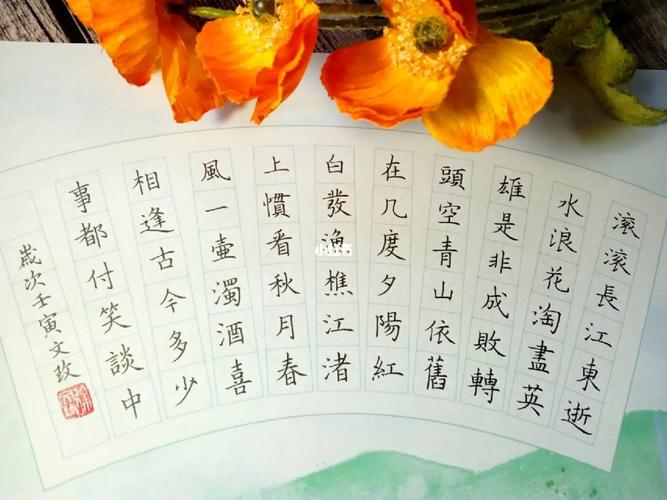 滾滾長江東逝
水浪花淘盡英
雄是非成敗轉
頭空青山依舊
在几度夕陽紅
白發漁樵江渚
上慣看秋月春
風一壺濁酒喜
相逢古今多少
事都付笑談中
歲次壬寅文玫
小红书